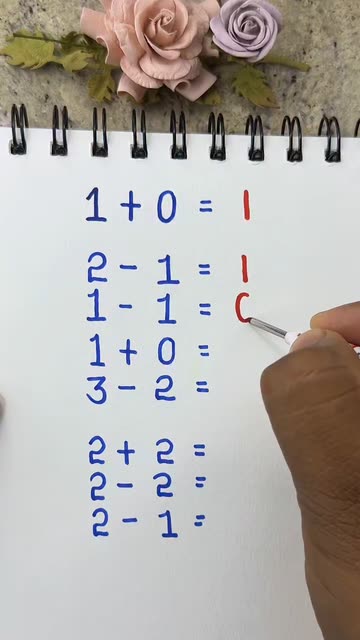 1 + 0 = 1
2 - 1 = 1
1 - 1 = 0
1 + 0 =
3 - 2 =
2 + 2 =
2 - 2 =
2 - 1 =